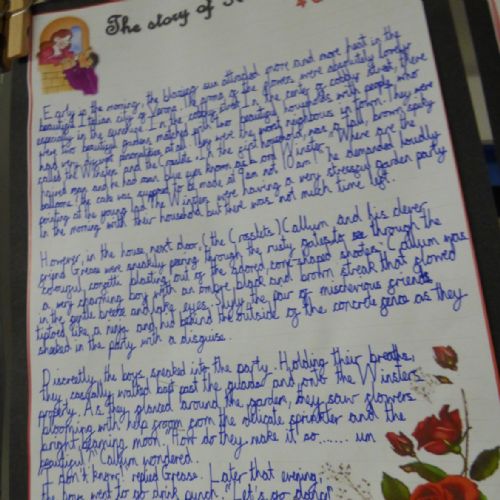 The story of
Early in the morning, the blazing sun attracted more and more heat in the
beautiful Italian city of Verona. The aroma of the flowers were absolutely lovely
especially in the sunshine. In the cobbly street, there
were two beautiful gardens matched with two beautiful households with people who
had very different personalities
called the Winsters and the Croslets. In the first household, was a tall, brown, spiky
haired man and he had ocean blue eyes known as Lord Winster. "Where are the
balloons? The cake was supposed to be made at 9am not 10am!" he demanded loudly
pointing at the young lad. The Winsters were having a very stressful garden party
in the morning with their household but there was not much time left.
However, in the house next door, (the Croslets) Callum and his clever
friend Grease were sneakily peering through the rusty to see through the
colourful confetti blasting out of the adored, cone shaped shooter. Callum was
a very charming boy with an ombre black and brown streak that glowed
in the gentle breeze and lake eyes. Slyly, the pair of mischevious friends
tiptoed like a ninja and hid behind the outside of the concrete fence as they
sneaked in the party with a disguise.
Discreetly, the boys sneaked into the party. Holding their breaths,
they carefully walked past the guards and onto the Winsters
property. As they glanced around the garden, they saw flowers
blooming with help from the delicate sprinkler and the
bright gleaming moon. "How do they make it so...... un
beautiful?" Callum wondered.
"I don't know!" replied Grease. Later that evening,
the boys went to go drink punch. "Let's go